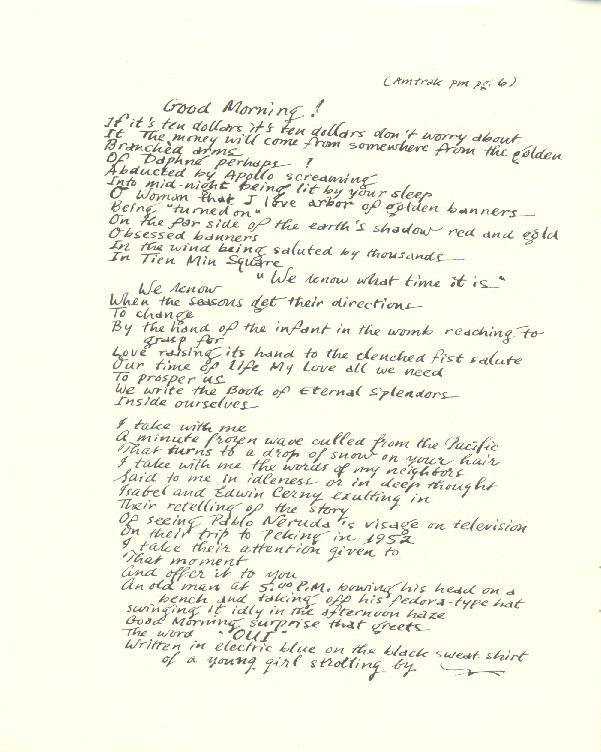 (Amtrak pm pg. 6)
Good Morning!
If it's ten dollars it's ten dollars don't worry about
It The money will come from somewhere from the golden
Branched arms
Of Daphne perhaps !
Abducted by Apollo screaming
Into mid-night being lit by your sleep
O Woman that I love arbor of golden banners—
Being "turned on"
On the far side of the earth's shadow red and gold
Obsessed banners
In the wind being saluted by thousands—
In Tien Min Square
"We know what time it is"
We know
When the seasons get their directions
To change
By the hand of the infant in the womb reaching to
grasp for
Love raising its hand to the clenched fist salute
Our time of life My Love all we need
To prosper us
We write the Book of Eternal Splendors
Inside ourselves—
I take with me
A minute frozen wave culled from the Pacific
That turns to a drop of snow on your hair
I take with me the words of my neighbors
Said to me in idleness or in deep thought
Isabel and Edwin Cerny exulting in
Their retelling of the story
Of seeing Pablo Neruda's visage on television
On their trip to Peking in 1952
I take their attention given to
That moment
And offer it to you
An old man at 5:00 P.M. bowing his head on a
bench and taking off his fedora-type hat
swinging it idly in the afternoon haze
Good Morning surprise that greets
The word "OUI"
Written in electric blue on the black sweat shirt
of a young girl strolling by